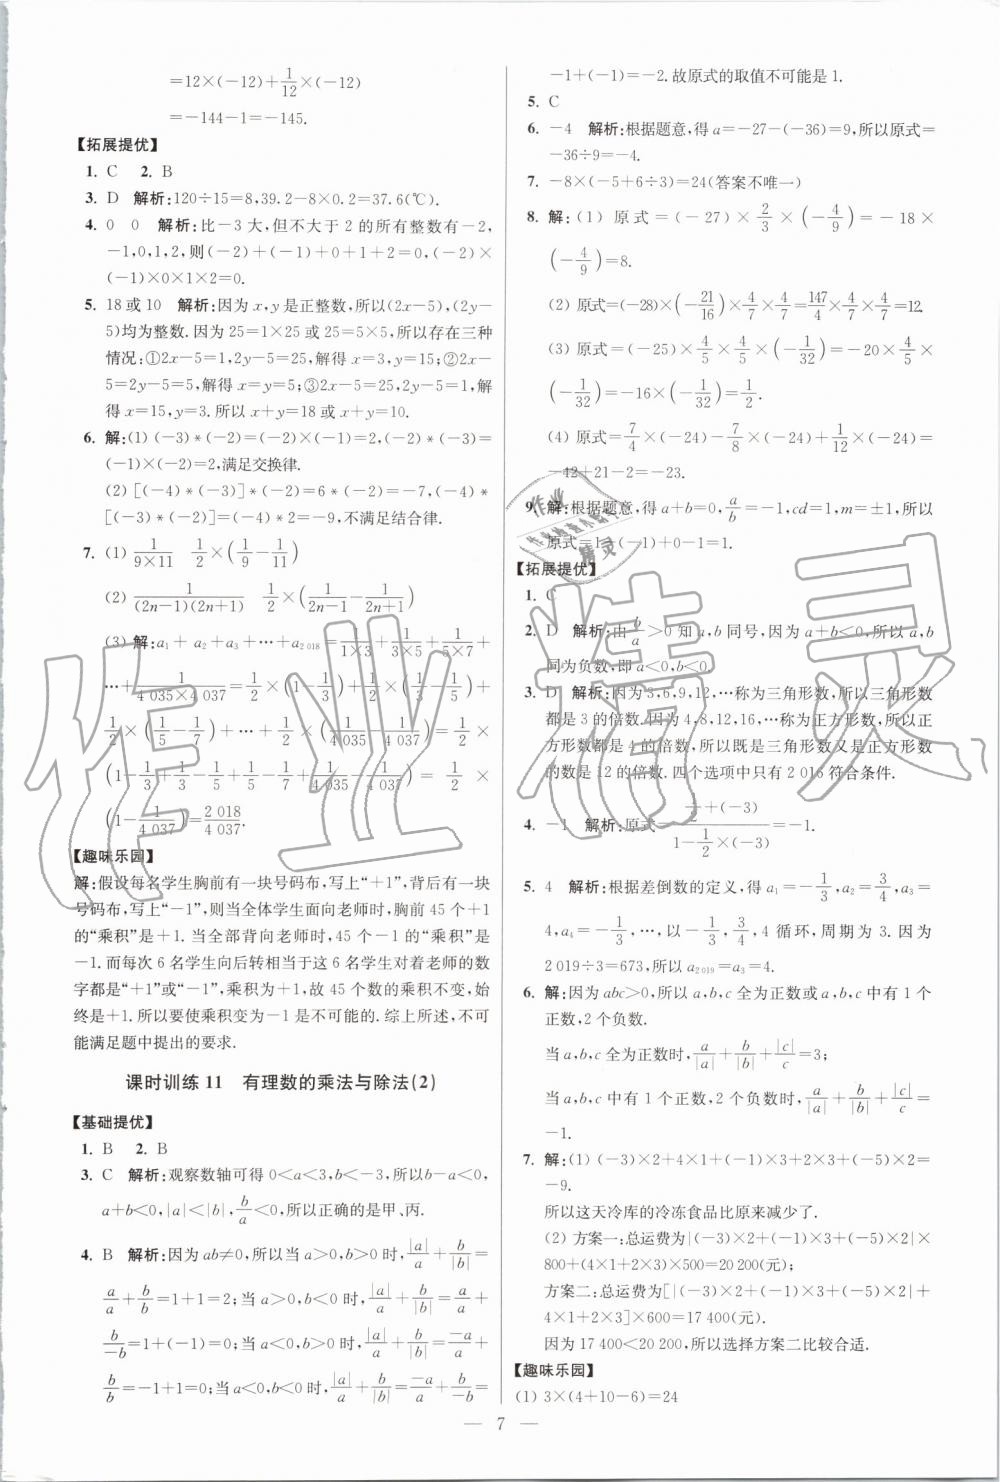 =12×(-12)+1/12×(-12)
=-144-1=-145.
【拓展提优】
1. C 2. B
3. D 解析:120÷15=8,39.2-8×0.2=37.6(℃).
4. 0 0 解析:比-3大,但不大于2的所有整数有-2,
-1,0,1,2,则(-2)+(-1)+0+1+2=0,(-2)×
(-1)×0×1×2=0.
5. 18或10 解析:因为x,y是正整数,所以(2x-5),(2y-
5)均为整数.因为25=1×25或25=5×5,所以存在三种
情况:①2x-5=1,2y-5=25,解得x=3,y=15;②2x-
5=2y-5=5,解得x=y=5;③2x-5=25,2y-5=1,解
得x=15,y=3.所以x+y=18或x+y=10.
6. 解:(1)(-3)*(-2)=(-2)×(-1)=2,(-2)*(-3)=
(-1)×(-2)=2,满足交换律.
(2)[(-4)*(-3)]*(-2)=6*(-2)=-7,(-4)*
[(-3)*(-2)]=(-4)*2=-9,不满足结合律.
7. (1) 1/(9×11) 1/2×(1/9-1/11)
(2) 1/((2n-1)(2n+1)) 1/2×(1/(2n-1)-1/(2n+1))
(3) 解:a₁+a₂+a₃+…+a₂₀₁₈=1/(1×3)+1/(3×5)+1/(5×7)+
…+1/(4 035×4 037)=1/2×(1-1/3)+1/2×(1/3-1/5)+
1/2×(1/5-1/7)+…+1/2×(1/4 035-1/4 037)=1/2×
(1-1/3+1/3-1/5+1/5-1/7+…+1/4 035-1/4 037)=1/2×
(1-1/4 037)=2 018/4 037.
【趣味乐园】
解:假设每名学生胸前有一块号码布,写上“+1”,背后有一块
号码布,写上“-1”,则当全体学生面向老师时,胸前45个+1
的“乘积”是+1.当全部背向老师时,45个-1的“乘积”是
-1.而每次6名学生向后转相当于这6名学生对着老师的数
字都是“+1”或“-1”,乘积为+1,故45个数的乘积不变,始
终是+1.所以要使乘积变为-1是不可能的.综上所述,不可
能满足题中提出的要求.
课时训练11 有理数的乘法与除法(2)
【基础提优】
1. B 2. B
3. C 解析:观察数轴可得0<a<3,b<-3,所以b-a<0,
a+b<0,|a|<|b|,b/a<0,所以正确的是甲、丙.
4. B 解析:因为ab≠0,所以当a>0,b>0时,|a|/a+b/|b|=
a/a+b/b=1+1=2;当a>0,b<0时,|a|/a+b/|b|=a/a+
b/-b=1+(-1)=0;当a<0,b>0时,|a|/a+b/|b|=-a/a+
b/b=-1+1=0;当a<0,b<0时,|a|/a+b/|b|=-a/a+b/-b=
-1+(-1)=-2.故原式的取值不可能是1.
5. C
6. -4 解析:根据题意,得a=-27-(-36)=9,所以原式=
-36÷9=-4.
7. -8×(-5+6÷3)=24(答案不唯一)
8. 解:(1) 原式=(-27)×2/3×(-4/9)=-18×
(-4/9)=8.
(2) 原式=(-28)×(-21/16)×4/7×4/7=147/4×4/7×4/7=12.
(3) 原式=(-25)×4/5×4/5×(-1/32)=-20×4/5×
(-1/32)=-16×(-1/32)=1/2.
(4) 原式=7/4×(-24)-7/8×(-24)+1/12×(-24)=
-42+21-2=-23.
9. 解:根据题意,得a+b=0,a/b=-1,cd=1,m=±1,所以
原式=1-(-1)+0-1=1.
【拓展提优】
1. C
2. D 解析:由b/a>0知a,b同号,因为a+b<0,所以a,b
同为负数,即a<0,b<0.
3. D 解析:因为3,6,9,12,…称为三角形数,所以三角形数
都是3的倍数.因为4,8,12,16,…称为正方形数,所以正
方形数都是4的倍数,所以既是三角形数又是正方形数
的数是12的倍数.四个选项中只有2 016符合条件.
4. -1 解析:原式= +(-3)/(1-1/2×(-3))=-1.
5. 4 解析:根据差倒数的定义,得a₁=-1/3,a₂=3/4,a₃=
4,a₄=-1/3,…,以-1/3,3/4,4循环,周期为3.因为
2 019÷3=673,所以a₂₀₁₉=a₃=4.
6. 解:因为abc>0,所以a,b,c全为正数或a,b,c中有1个
正数,2个负数.
当a,b,c全为正数时,a/|a|+b/|b|+|c|/c=3;
当a,b,c中有1个正数,2个负数时,a/|a|+b/|b|+|c|/c=
-1.
7. 解:(1)(-3)×2+4×1+(-1)×3+2×3+(-5)×2=
-9.
所以这天冷库的冷冻食品比原来减少了.
(2) 方案一:总运费为|(-3)×2+(-1)×3+(-5)×2|×
800+(4×1+2×3)×500=20 200(元);
方案二:总运费为[|(-3)×2+(-1)×3+(-5)×2|+
4×1+2×3]×600=17 400(元).
因为17 400<20 200,所以选择方案二比较合适.
【趣味乐园】
(1) 3×(4+10-6)=24
— 7 —
作业精灵